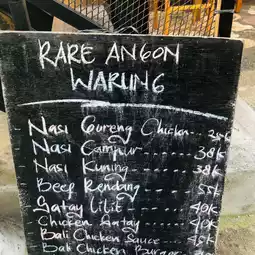 RARE ANGON
WARUNG
Nasi Goreng Chicken
Nasi Campur ------ 38k
Nasi Kuning ------ 38k
Beef Rendang ----- 55k
Satay Lilit ------ 40k
Chicken Satay ---- 40k
Bali Chicken Sauce ----
Bali Chicken Burger